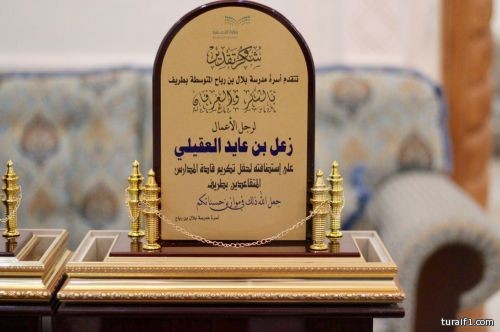 شكر وتقدير
تتقدم أسرة مدرسة بلال بن رباح المتوسطة بطريف
بالشكر والعرفان
لرجل الأعمال
زعل بن عايد العقيلي
على إستضافته لحفل تكريم قادة المدارس
المتقاعدين بطريف
جعل الله ذلك في موازين حسناتكم
أسرة مدرسة بلال بن رباح
turaif1.com